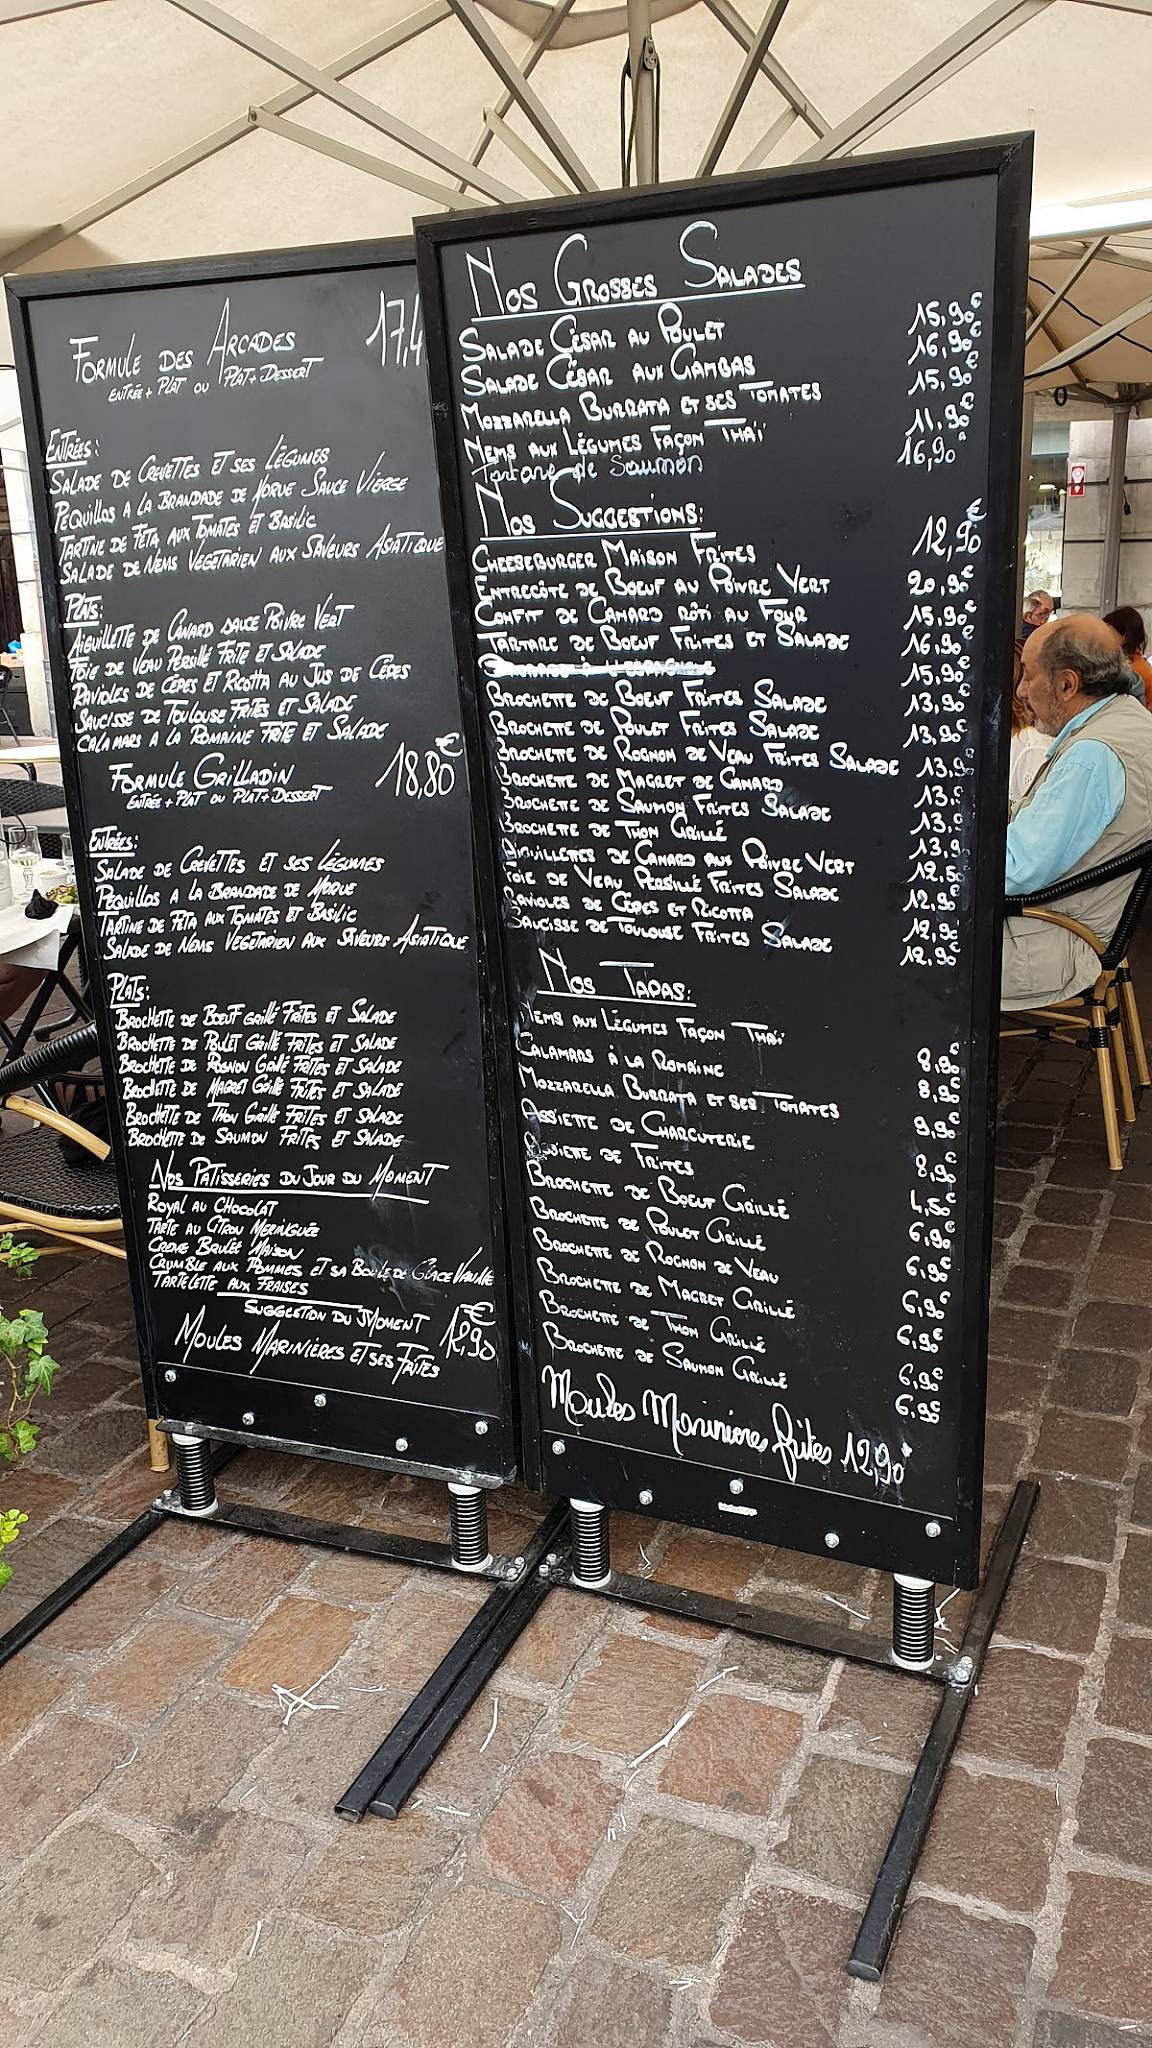 Formule des Arcades 17,4
Entrée + Plat ou Plat + Dessert
Entrées:
Salade de Crevettes et ses Légumes
Pequillos a la Brandade de Morue Sauce Vierge
Tartine de Feta aux Tomates et Basilic
Salade de Nems Vegetarien aux Saveurs Asiatique
Plats:
Aiguillette de Canard sauce Poivre Vert
Foie de Veau Persillé Frite et Salade
Ravioles de Cèpes et Ricotta au Jus de Cèpes
Saucisse de Toulouse Frites et Salade
Calamars a la Romaine Frite et Salade
Formule Grilladin 18,80€
Entrée + Plat ou Plat + Dessert
Entrées:
Salade de Crevettes et ses Légumes
Pequillos a la Brandade de Morue
Tartine de Feta aux Tomates et Basilic
Salade de Nems Vegetarien aux Saveurs Asiatique
Plats:
Brochette de Bœuf grillé Frites et Salade
Brochette de Poulet Grillé Frites et Salade
Brochette de Rognon Grillé Frites et Salade
Brochette de Magret Grillé Frites et Salade
Brochette de Thon Grillé Frites et Salade
Brochette de Saumon Frites et Salade
Nos Patisseries du Jour du Moment
Royal au Chocolat
Tarte au Citron Meringuée
Creme Brulée Maison
Crumble aux Pommes et sa Boule de Glace Vanille
Tartelette aux Fraises
Suggestion du Moment 12,90€
Moules Marinières et ses Frites
Nos Grosses Salades
Salade César au Poulet 15,90€
Salade César aux Gambas 16,90€
Mozzarella Burrata et ses Tomates 15,90€
Nems aux Légumes Façon Thaï 11,90€
Tartare de Saumon 16,90
Nos Suggestions:
Cheeseburger Maison Frites 12,90€
Entrecôte de Boeuf au Poivre Vert 20,90€
Confit de Canard rôti au Four 15,90€
Tartare de Boeuf Frites et Salade 16,90€
15,90€
Brochette de Boeuf Frites Salade 13,90€
Brochette de Poulet Frites Salade 13,90€
Brochette de Rognon de Veau Frites Salade 13,9
Brochette de Magret de Canard 13,9
Brochette de Saumon Frites Salade 13,9
Brochette de Thon Grillé 13,9
Aiguillettes de Canard aux Poivre Vert 12,50
Foie de Veau Persillé Frites Salade 12,90
Ravioles de Cèpes et Ricotta 12,90
Saucisse de Toulouse Frites Salade 12,90€
Nos Tapas:
Nems aux Légumes Façon Thaï 8,90€
Calamars à la Romaine 8,90€
Mozzarella Burrata et ses Tomates 9,90€
Assiette de Charcuterie 8,90€
Assiette de Frites 4,50€
Brochette de Boeuf Grillé 6,90€
Brochette de Poulet Grillé 6,90€
Brochette de Rognon de Veau 6,90€
Brochette de Magret Grillé 6,90€
Brochette de Thon Grillé 6,90€
Brochette de Saumon Grillé 6,90€
Moules Marinieres frites 12,90€